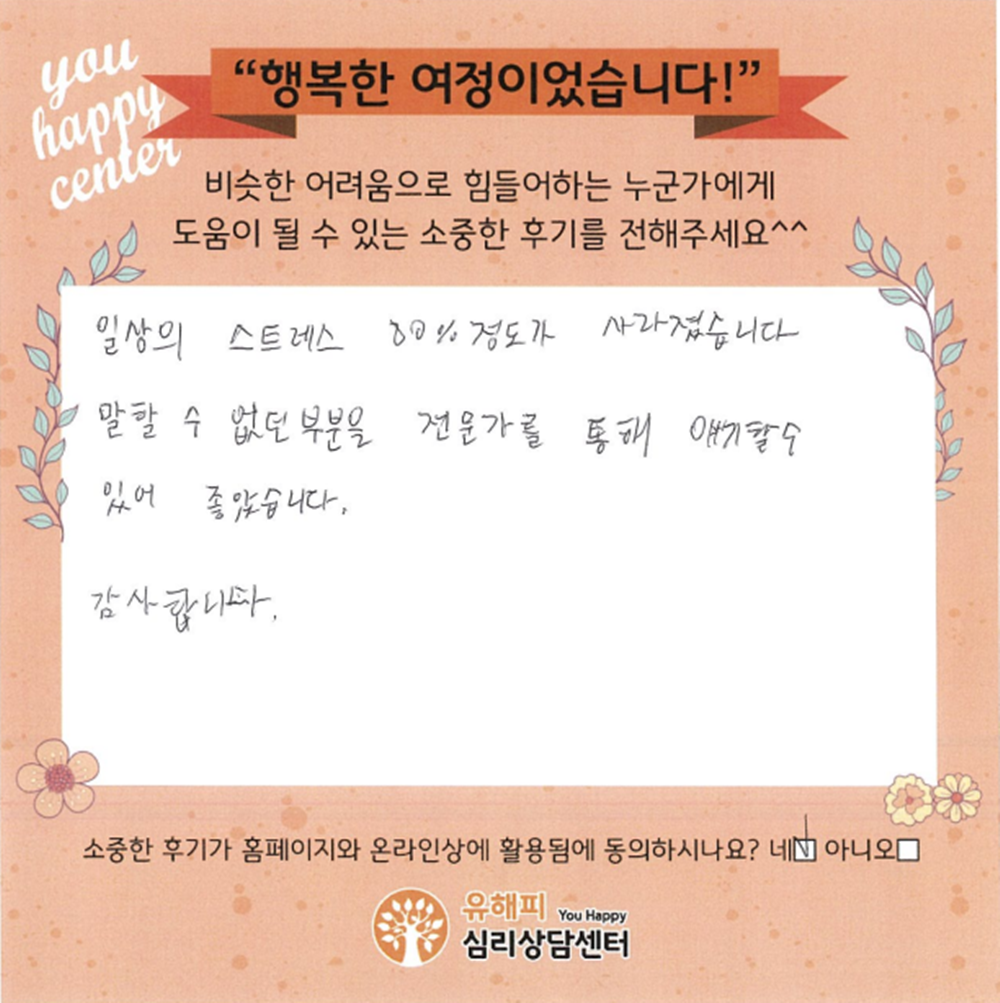 you
happy
center
“행복한 여정이었습니다!”
비슷한 어려움으로 힘들어하는 누군가에게
도움이 될 수 있는 소중한 후기를 전해주세요^^
일상의 스트레스 80% 정도가 사라졌습니다
말할 수 없던 부분을 전문가를 통해 얘기할수
있어 좋았습니다.
감사합니다.
소중한 후기가 홈페이지와 온라인상에 활용됨에 동의하시나요? 네☑ 아니오☐
유해피 You Happy
심리상담센터